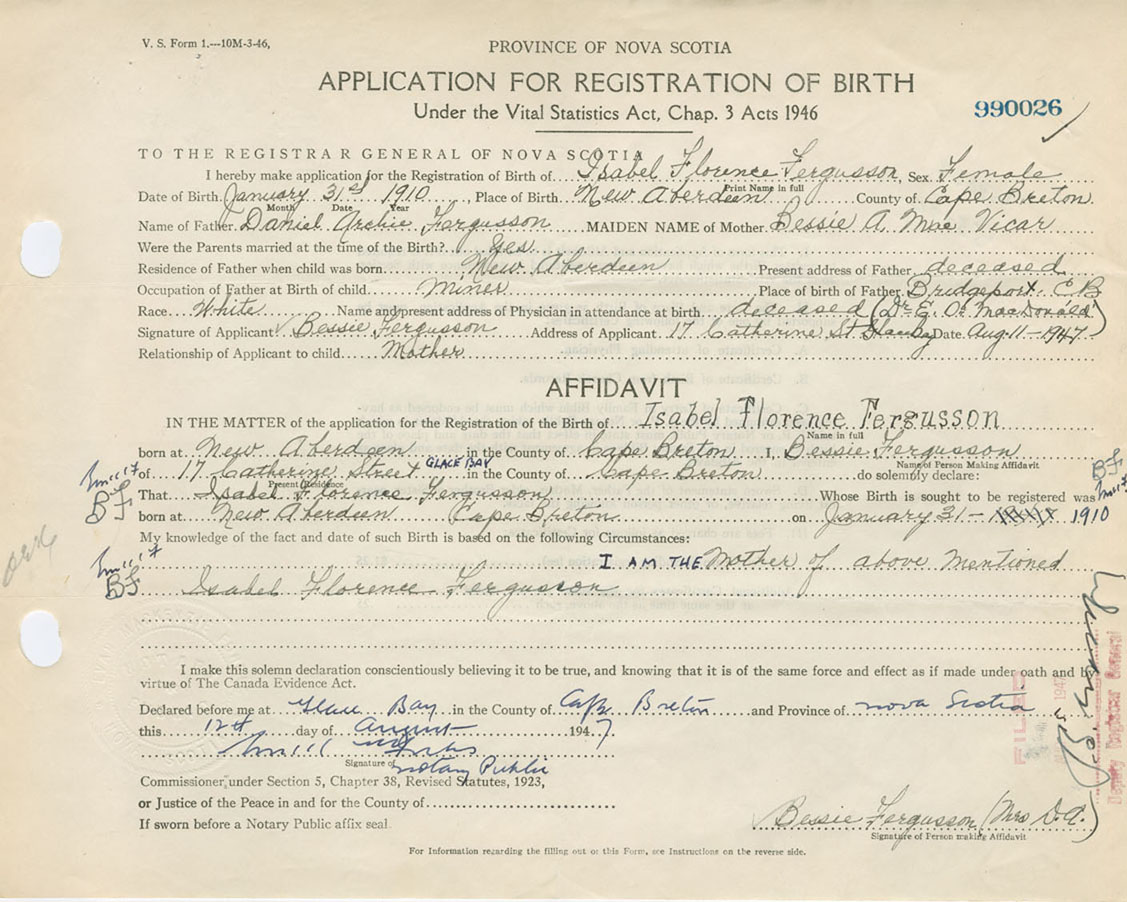 V. S. Form 1.---10M-3-46,
PROVINCE OF NOVA SCOTIA
APPLICATION FOR REGISTRATION OF BIRTH
Under the Vital Statistics Act, Chap. 3 Acts 1946
990026
TO THE REGISTRAR GENERAL OF NOVA SCOTIA
I hereby make application for the Registration of Birth of Isabel Florence Fergusson, Sex Female
Print Name in full
Date of Birth January 31st 1910, Place of Birth New Aberdeen County of Cape Breton
Month Date Year
Name of Father Daniel Archie Fergusson MAIDEN NAME of Mother Bessie A Mac Vicar
Were the Parents married at the time of the Birth? Yes
Residence of Father when child was born New Aberdeen Present address of Father deceased
Occupation of Father at Birth of child Miner Place of birth of Father Bridgeport C B
Race White Name and present address of Physician in attendance at birth deceased (Dr E. O. MacDonald)
Signature of Applicant Bessie Fergusson Address of Applicant 17 Catherine St Date Aug 11-1947
Relationship of Applicant to child Mother
AFFIDAVIT
IN THE MATTER of the application for the Registration of the Birth of Isabel Florence Fergusson
Name in full
born at New Aberdeen in the County of Cape Breton I, Bessie Fergusson
Name of Person Making Affidavit
of 17 Catherine Street GLACE BAY in the County of Cape Breton do solemnly declare:
Present Residence
BF
That Isabel Florence Fergusson Whose Birth is sought to be registered was
BF
born at New Aberdeen Cape Breton on January 31- 1910
My knowledge of the fact and date of such Birth is based on the following Circumstances:
I AM THE Mother of above mentioned
BF Isabel Florence Fergusson
I make this solemn declaration conscientiously believing it to be true, and knowing that it is of the same force and effect as if made under oath and by
virtue of The Canada Evidence Act.
Declared before me at Glace Bay in the County of Cape Breton and Province of Nova Scotia
this 12th day of August 1947
Signature of Notary Public
Commissioner under Section 5, Chapter 38, Revised Statutes, 1923,
or Justice of the Peace in and for the County of
If sworn before a Notary Public affix seal.
Bessie Fergusson (Mrs D.A.)
Signature of Person making Affidavit
For Information regarding the filling out of this Form, see Instructions on the reverse side.
FILED
1947
Deputy Registrar General